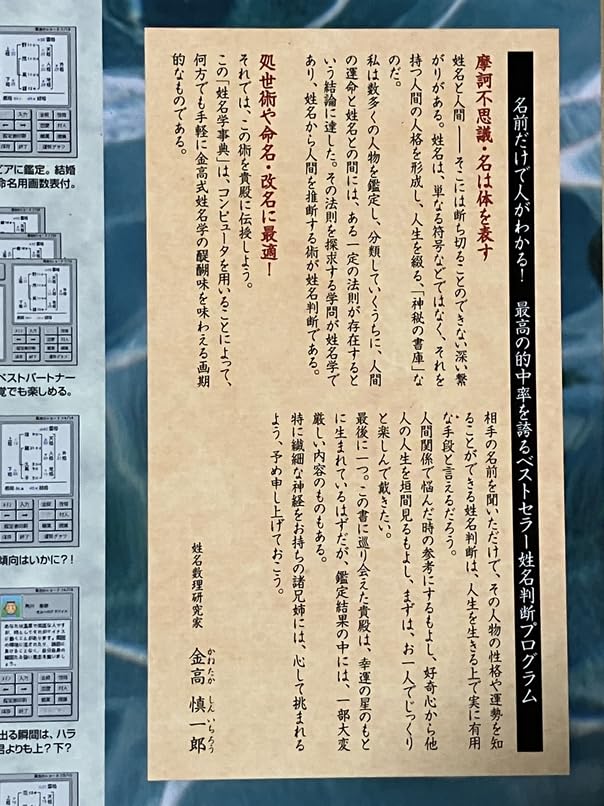 名前だけで人がわかる! 最高の的中率を誇るベストセラー姓名判断プログラム
摩訶不思議・名は体を表す
姓名と人間――そこには断ち切ることのできない深い繋
がりがある。姓名は、単なる符号などではなく、それを
持つ人間の人格を形成し、人生を綴る、「神秘の書庫」な
のだ。
私は数多くの人物を鑑定し、分類していくうちに、人間
の運命と姓名との間には、ある一定の法則が存在すると
いう結論に達した。その法則を探求する学問が姓名学で
あり、姓名から人間を推断する術が姓名判断である。
処世術や命名・改名に最適!
それでは、この術を貴殿に伝授しよう。
この「姓名学事典」は、コンピュータを用いることによって、
何方でも手軽に金高式姓名学の醍醐味を味わえる画期
的なものである。
相手の名前を聞いただけで、その人物の性格や運勢を知
ることができる姓名判断は、人生を生きる上で実に有用
な手段と言えるだろう。
人間関係で悩んだ時の参考にするもよし、好奇心から他
人の人生を垣間見るもよし、まずは、お一人でじっくり
と楽しんで戴きたい。
最後に一つ。この書に巡り会えた貴殿は、幸運の星のもと
に生まれているはずだが、鑑定結果の中には、一部大変
厳しい内容のものもある。
特に繊細な神経をお持ちの諸兄姉には、心して挑まれる
よう、予め申し上げておこう。
姓名数理研究家 金高 慎一郎
しんいちろう
ピアに鑑定。結婚
命名用画数表付。
ベストパートナー
覚でも楽しめる。
傾向はいかに?!
出る瞬間は、ハラ
君よりも上?下?